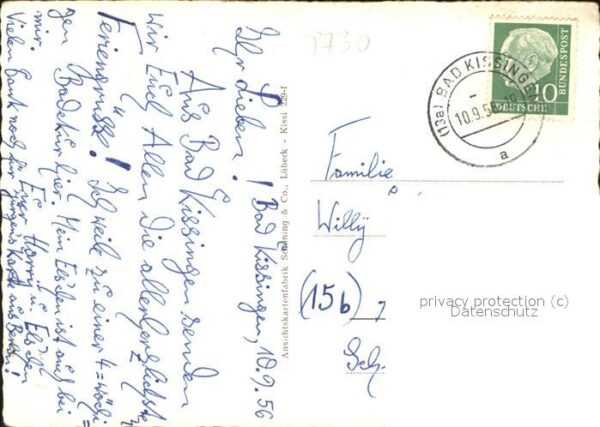 Bad Kissingen, 10.9.56
Ihr Lieben!
Aus Bad Kissingen senden
wir Euch Allen die allerherzlichsten
Feriengrüsse! Ich weile zu einer 4=wöchi=
gen Badekur hier. Mein Elschen ist auch bei
mir.
Vielen Dank noch für
Euer Harry u. Elschen
5730
(13a) BAD KISSINGEN
10.9.56
a
10
DEUTSCHE
BUNDESPOST
Ansichtskartenfabrik Schöning & Co., Lübeck - Kissi 229-f
Familie
Willy
(15b)
privacy protection (c)
Datenschutz